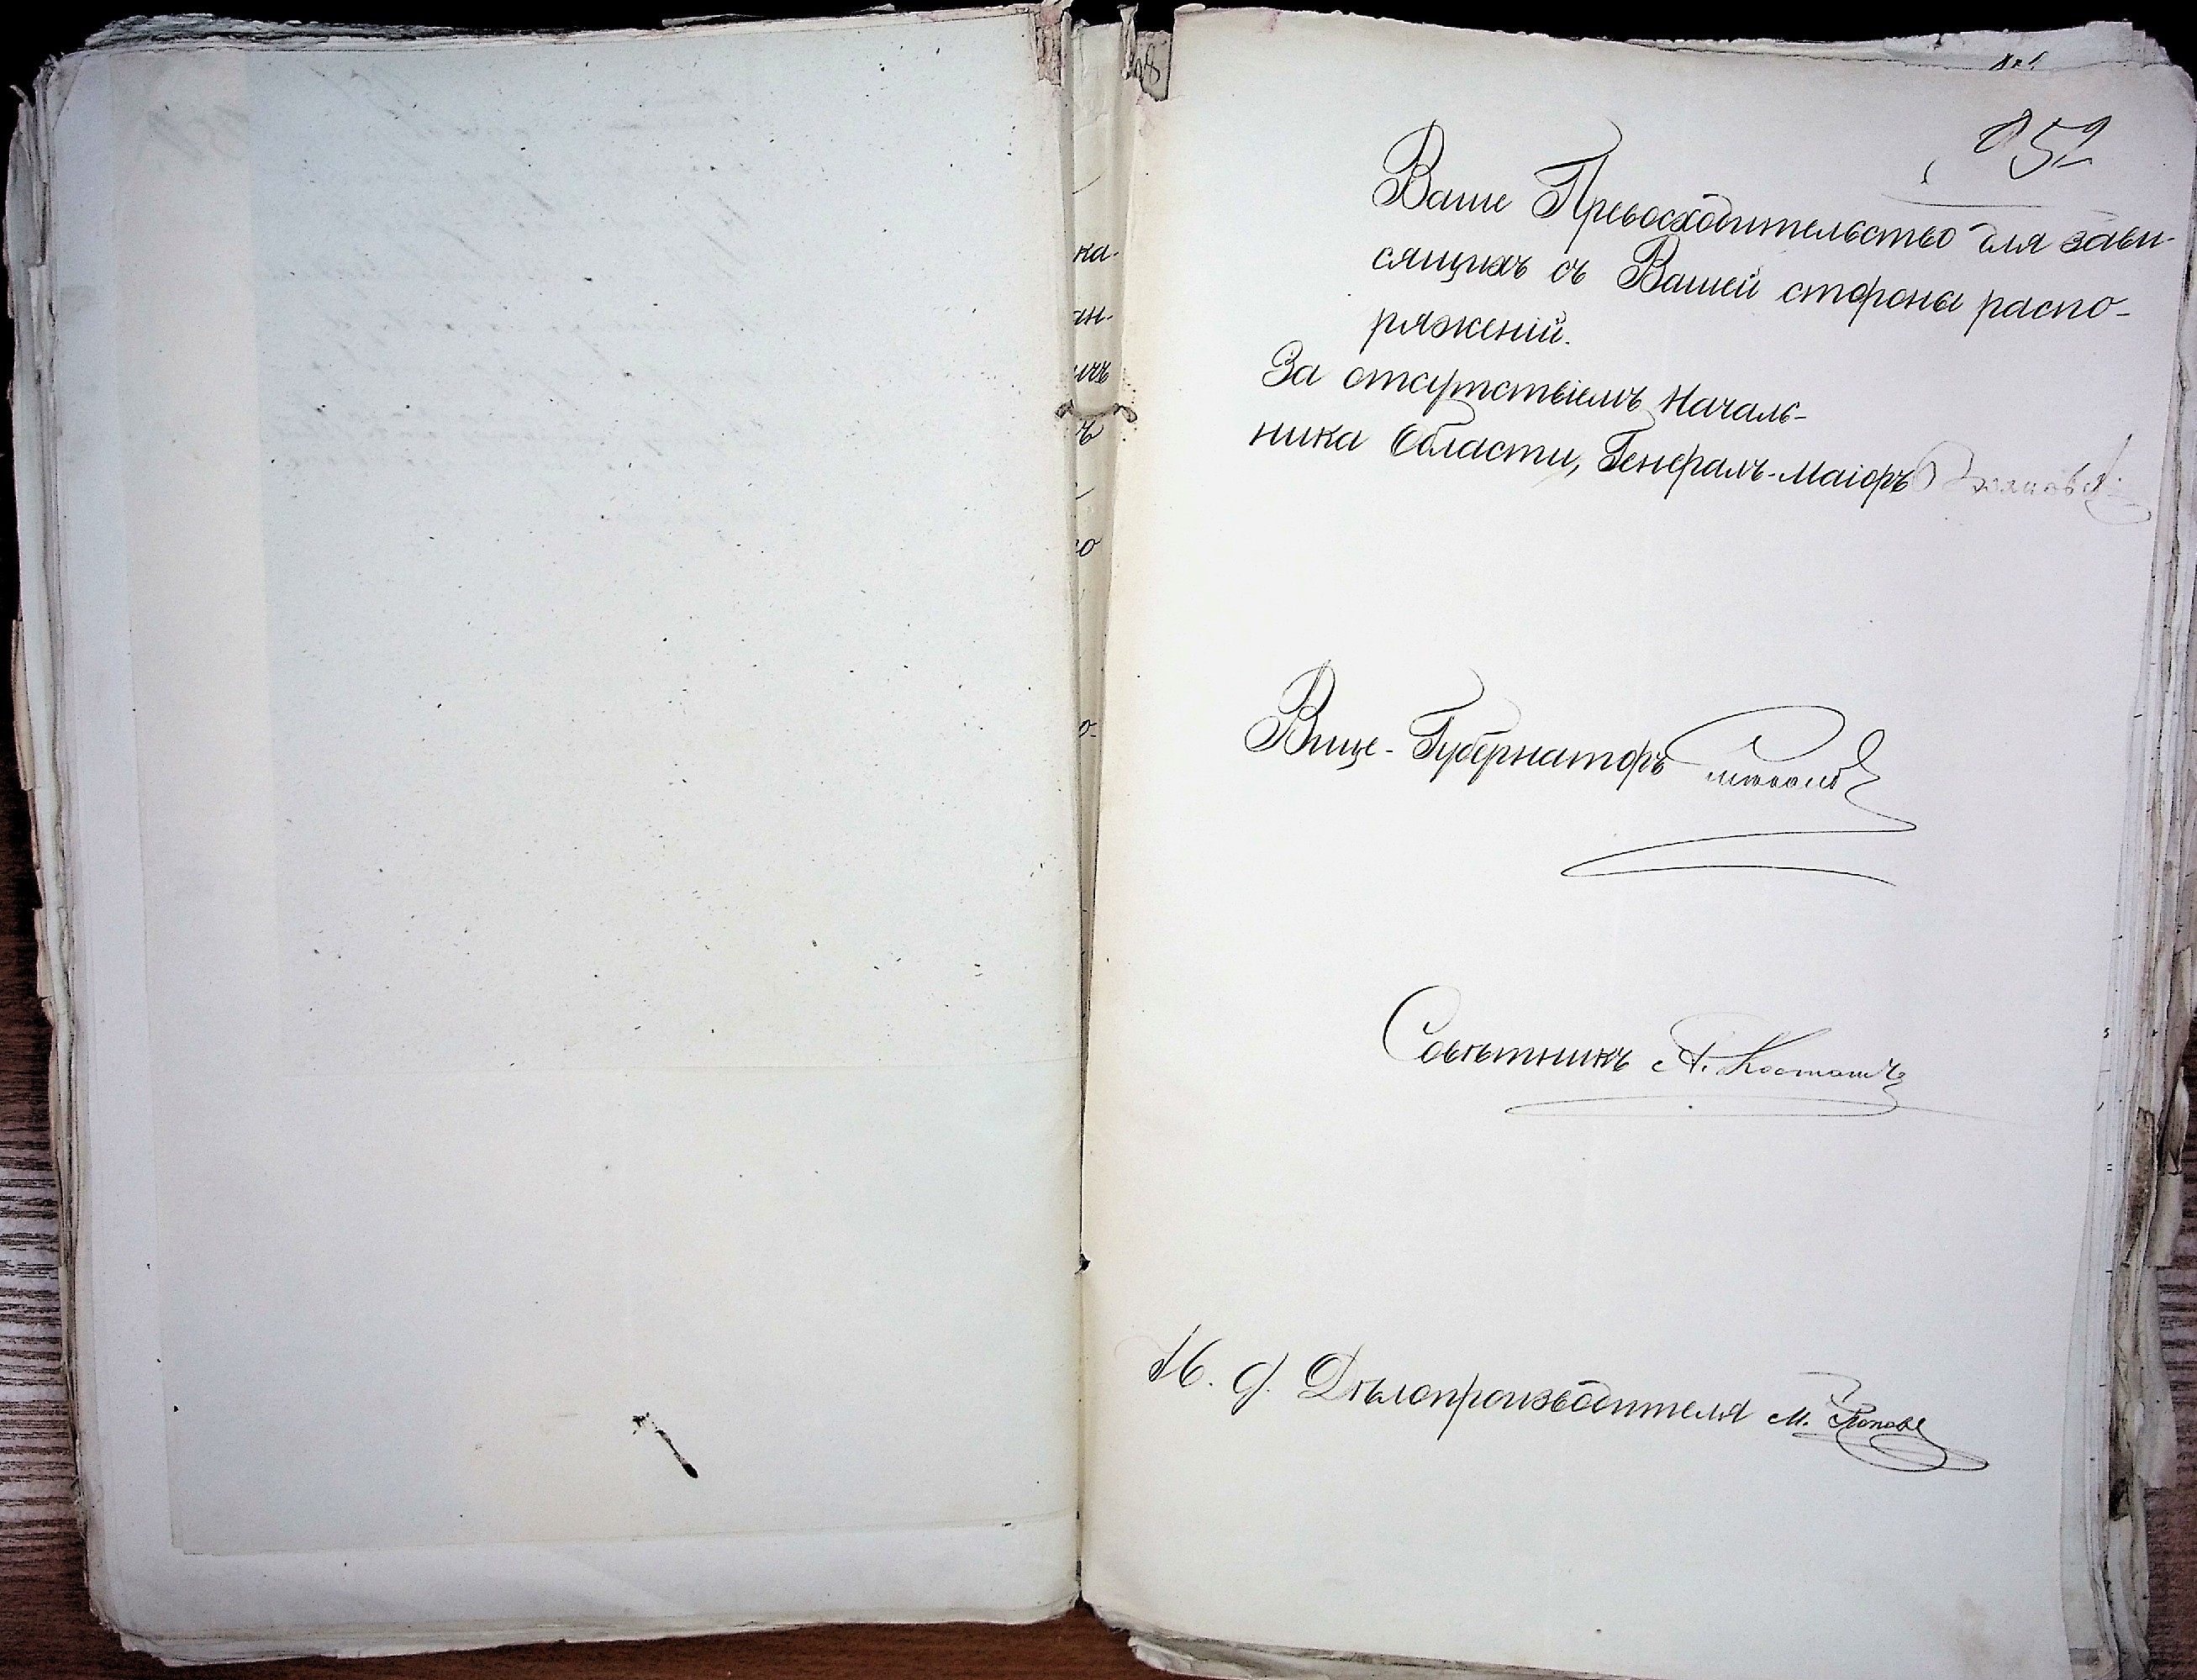 ка-
ан-
ъ
о-
52
Ваше Превосходительство для зави-
сящихъ съ Вашей стороны распо-
ряженій.
За отсутствіемъ Началь-
ника Области, Генералъ-Маіоръ
Вице-Губернаторъ
Совѣтникъ А.
И. д. Дѣлопроизводителя М. Поповъ